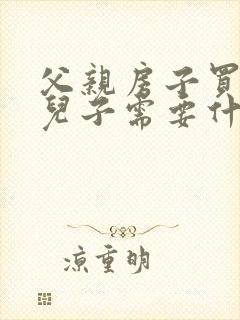 父親房子買
兒子需要什
涼重明